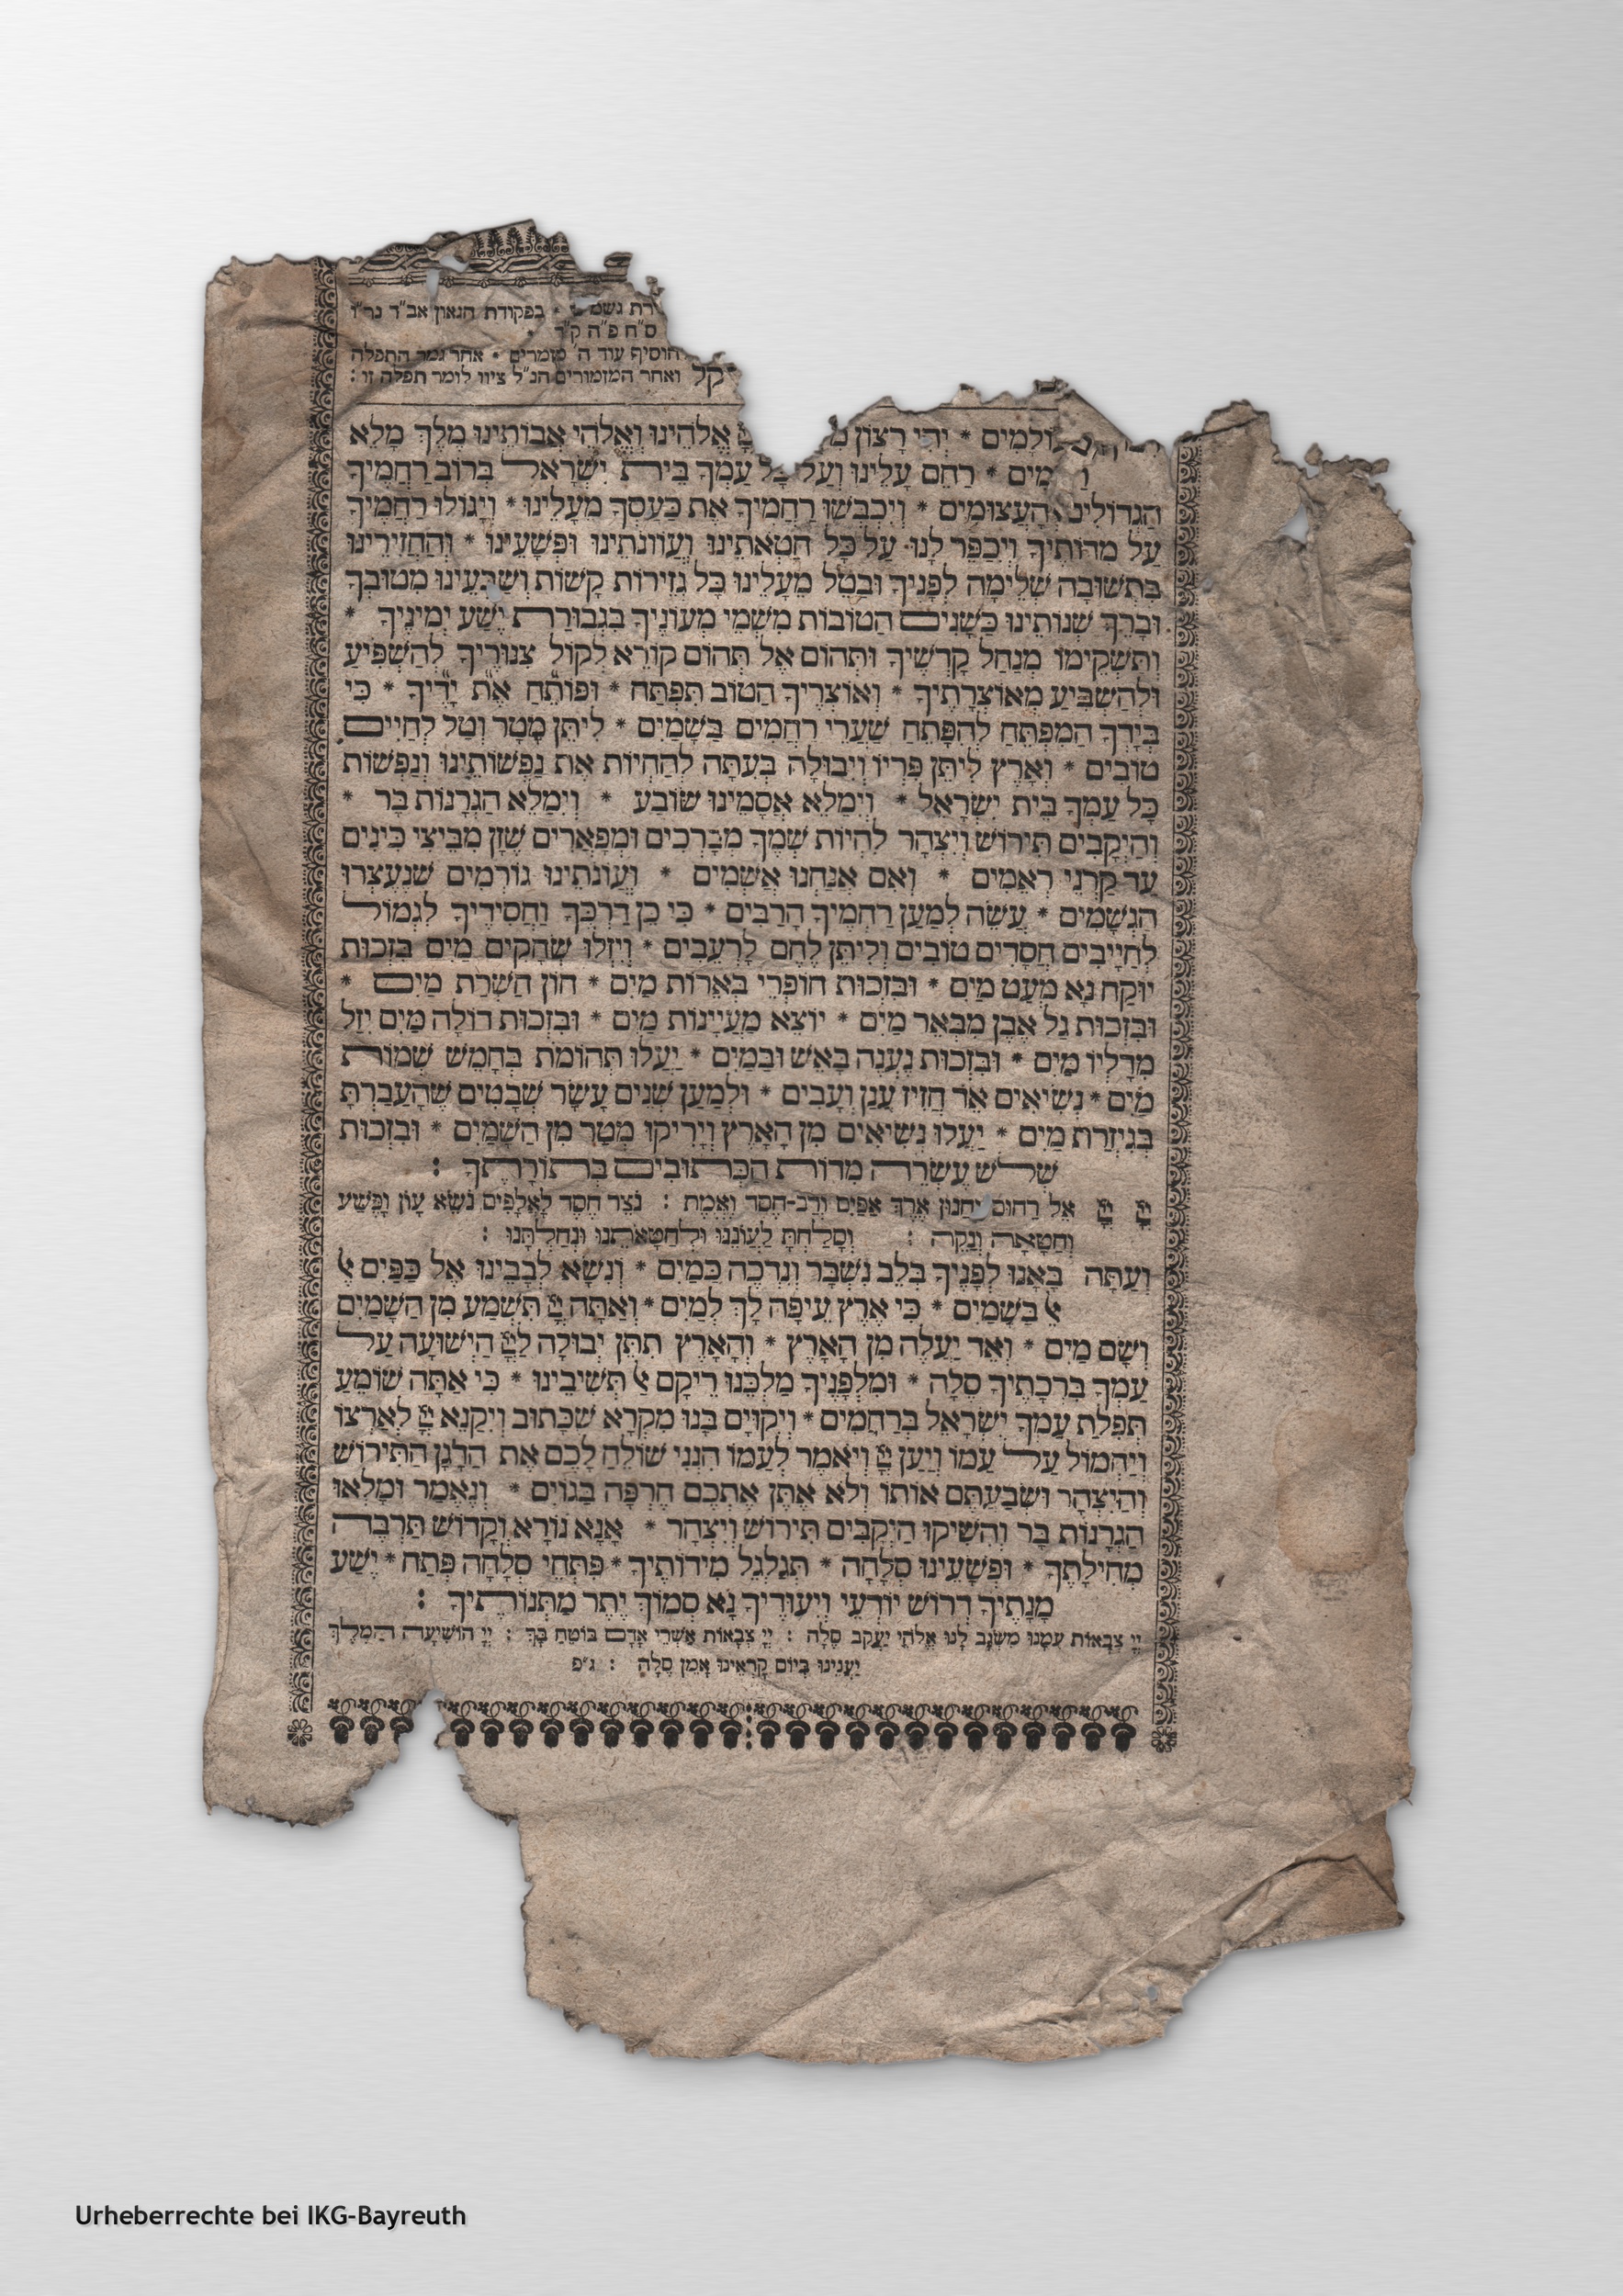 בפקודת הגאון אב״ד נר״ו
ס״ח פ״ה
הוסיף עוד ה׳ אחר גמר התפלה
קל ואחר המזמורים הנ״ל ציוו לומר תפלה זו :
יְהִי רָצוֹן אֱלֹהֵינוּ וֶאֱלֹהֵי אֲבוֹתֵינוּ מֶלֶךְ מָלֵא
רַחֵם עָלֵינוּ וְעַל עַמְּךָ בֵּית יִשְׂרָאֵל בְּרוֹב רַחֲמֶיךָ
הָעֲצוּמִים * וְיִכְבְּשׁוּ רַחֲמֶיךָ אֶת כַּעַסְךָ מֵעָלֵינוּ * וְיָגוֹלוּ רַחֲמֶיךָ
עַל מִדּוֹתֶיךָ וִיכַפֵּר לָנוּ עַל כָּל חַטֹּאתֵינוּ וַעֲווֹנֹתֵינוּ וּפְשָׁעֵינוּ * וְהַחֲזִירֵינוּ
בִּתְשׁוּבָה שְׁלֵימָה לְפָנֶיךָ וּבַטֵּל מֵעָלֵינוּ כָּל גְּזֵירוֹת קָשׁוֹת וְשַׂבְּעֵינוּ מִטּוּבֶךָ
וּבָרֵךְ שְׁנוֹתֵינוּ כַּשָּׁנִים הַטּוֹבוֹת מִשְּׁמֵי מְעוֹנֶיךָ בִּגְבוּרַת יֶשַׁע יְמִינֶיךָ *
וְתַשְׁקֵימוֹ מִנַּחַל קָדְשֶׁיךָ וּתְהוֹם אֶל תְּהוֹם קוֹרֵא לְקוֹל צִנּוֹרֶיךָ לְהַשְׁפִּיעַ
וּלְהַשְׂבִּיעַ מֵאוֹצְרֹתֶיךָ * וְאוֹצָרֶיךָ הַטּוֹב תִּפְתַּח * וּפוֹתֵחַ אֶת יָדֶיךָ * כִּי
בְּיָדְךָ הַמַּפְתֵּחַ לְהִפָּתֵחַ שַׁעֲרֵי רַחֲמִים בַּשָּׁמַיִם * לִיתֵּן מָטָר וְטַל לְחַיִּים
טוֹבִים * וְאֶרֶץ לִיתֵּן פִּרְיוֹ וִיבוּלָהּ בְּעִתָּהּ לְהַחֲיוֹת אֶת נַפְשׁוֹתֵינוּ וְנַפְשׁוֹת
כָּל עַמְּךָ בֵּית יִשְׂרָאֵל * וְיִמָּלֵא אֲסָמֵינוּ שׂוֹבַע * וְיִמָּלֵא הַגְּרָנוֹת בָּר *
וְהַיְקָבִים תִּירוֹשׁ וְיִצְהָר לִהְיוֹת שִׁמְךָ מְבָרְכִים וּמְפָאֲרִים שֶׁזָּן מִבֵּיצֵי כִּינִים
עַד קַרְנֵי רְאֵמִים * וְאִם אֲנַחְנוּ אֲשֵׁמִים * וַעֲוֹנֹתֵינוּ גּוֹרְמִים שֶׁנֶּעֶצְרוּ
הַגְּשָׁמִים * עֲשֵׂה לְמַעַן רַחֲמֶיךָ הָרַבִּים * כִּי כֵן דַּרְכֶּךָ וַחֲסִידֶיךָ לִגְמוֹל
לְחַיָּיבִים חֲסָדִים טוֹבִים וְלִיתֵּן לֶחֶם לִרְעֵבִים * וְיִזְּלוּ שְׁחָקִים מַיִם בִּזְכוּת
יוּקַּח נָא מְעַט מַיִם * וּבִזְכוּת חוֹפְרֵי בְּאֵרוֹת מַיִם * חוֹן הַשְׁרַת מַיִם *
וּבִזְכוּת גַּל אֶבֶן מִבְּאֵר מַיִם * יוֹצֵא מַעְיָינוֹת מַיִם * וּבִזְכוּת דּוֹלֶה מַיִם יִזַּל
מִדָּלְיוֹ מַיִם * וּבִזְכוּת נַעֲנֶה בָּאֵשׁ וּבַמַּיִם * יַעֲלוּ תְּהוֹמֹת בְּחָמֵשׁ שְׁמוֹת
מַיִם * נְשִׂיאִים אֵד חָזִיז עָנָן וְעָבִים * וּלְמַעַן שְׁנֵים עָשָׂר שְׁבָטִים שֶׁהֶעֱבַרְתָּ
בִּגְיזֵרַת מַיִם * יַעֲלוּ נְשִׂיאִים מִן הָאָרֶץ וְיָרִיקוּ מָטָר מִן הַשָּׁמַיִם * וּבִזְכוּת
שְׁלֹשׁ עֶשְׂרֵה מִדּוֹת הַכְּתוּבִים בְּתוֹרָתֶךָ :
יְיָ יְיָ אֵל רַחוּם וְחַנּוּן אֶרֶךְ אַפַּיִם וְרַב־חֶסֶד וֶאֱמֶת : נֹצֵר חֶסֶד לָאֲלָפִים נֹשֵׂא עָוֹן וָפֶשַׁע
וְחַטָּאָה וְנַקֵּה : וְסָלַחְתָּ לַעֲוֹנֵנוּ וּלְחַטָּאתֵנוּ וּנְחַלְתָּנוּ :
וְעַתָּה בָּאנוּ לְפָנֶיךָ בְּלֵב נִשְׁבָּר וְנִדְכֶּה כַּמַּיִם * וְנִשָּׂא לְבָבֵינוּ אֶל כַּפַּיִם אֶל
אֵל בַּשָּׁמַיִם * כִּי אֶרֶץ עֵיפָה לְךָ לְמַיִם * וְאַתָּה יְיָ תִּשְׁמַע מִן הַשָּׁמַיִם
וְשָׂם מַיִם * וְאֵד יַעֲלֶה מִן הָאָרֶץ * וְהָאָרֶץ תִּתֵּן יְבוּלָהּ לַיְיָ הַיְשׁוּעָה עַל
עַמְּךָ בִּרְכָתֶיךָ סֶלָה * וּמִלְּפָנֶיךָ מַלְכֵּנוּ רֵיקָם אַל תְּשִׁיבֵינוּ * כִּי אַתָּה שׁוֹמֵעַ
תְּפִלַּת עַמְּךָ יִשְׂרָאֵל בְּרַחֲמִים * וִיקוּיַּם בָּנוּ מִקְרָא שֶׁכָּתוּב וִיקַנֵּא יְיָ לְאַרְצוֹ
וְיַחְמוֹל עַל עַמּוֹ וַיַּעַן יְיָ וְיֹאמַר לְעַמּוֹ הִנְנִי שׁוֹלֵחַ לָכֶם אֶת הַדָּגָן הַתִּירוֹשׁ
וְהַיִּצְהָר וּשְׂבַעְתֶּם אוֹתוֹ וְלֹא אֶתֵּן אֶתְכֶם חֶרְפָּה בַּגּוֹיִם * וְנֶאֱמַר וּמָלְאוּ
הַגְּרָנוֹת בָּר וְהֵשִׁיקוּ הַיְקָבִים תִּירוֹשׁ וְיִצְהָר * אָנָא נוֹרָא וְקָדוֹשׁ תַּרְבֶּה
מְחִילָתֶךָ * וּפְשָׁעֵינוּ סְלָחָה * תְּגַלְגֵּל מִידּוֹתֶיךָ * פִּתְחֵי סְלָחָה פְּתַח * יֶשַׁע
מְנָתֶיךָ דְּרוֹשׁ יוֹדְעֵי וְיֵעוּרֶיךָ נָא סְמוֹךְ יֶתֶר מִתְּנוֹרֹתֶיךָ :
יְיָ צְבָאוֹת עִמָּנוּ מִשְׂגָּב לָנוּ אֱלֹהֵי יַעֲקֹב סֶלָה : יְיָ צְבָאוֹת אַשְׁרֵי אָדָם בּוֹטֵחַ בָּךְ : יְיָ הוֹשִׁיעָה הַמֶּלֶךְ
יַעֲנֵינוּ בְיוֹם קָרְאֵינוּ אָמֵן סֶלָה : ג״פ
Urheberrechte bei IKG-Bayreuth